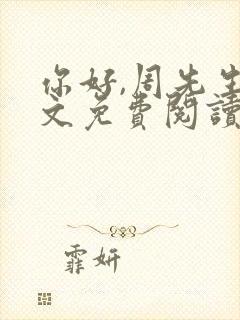 你好,周先生
文免費閱讀
霏妍